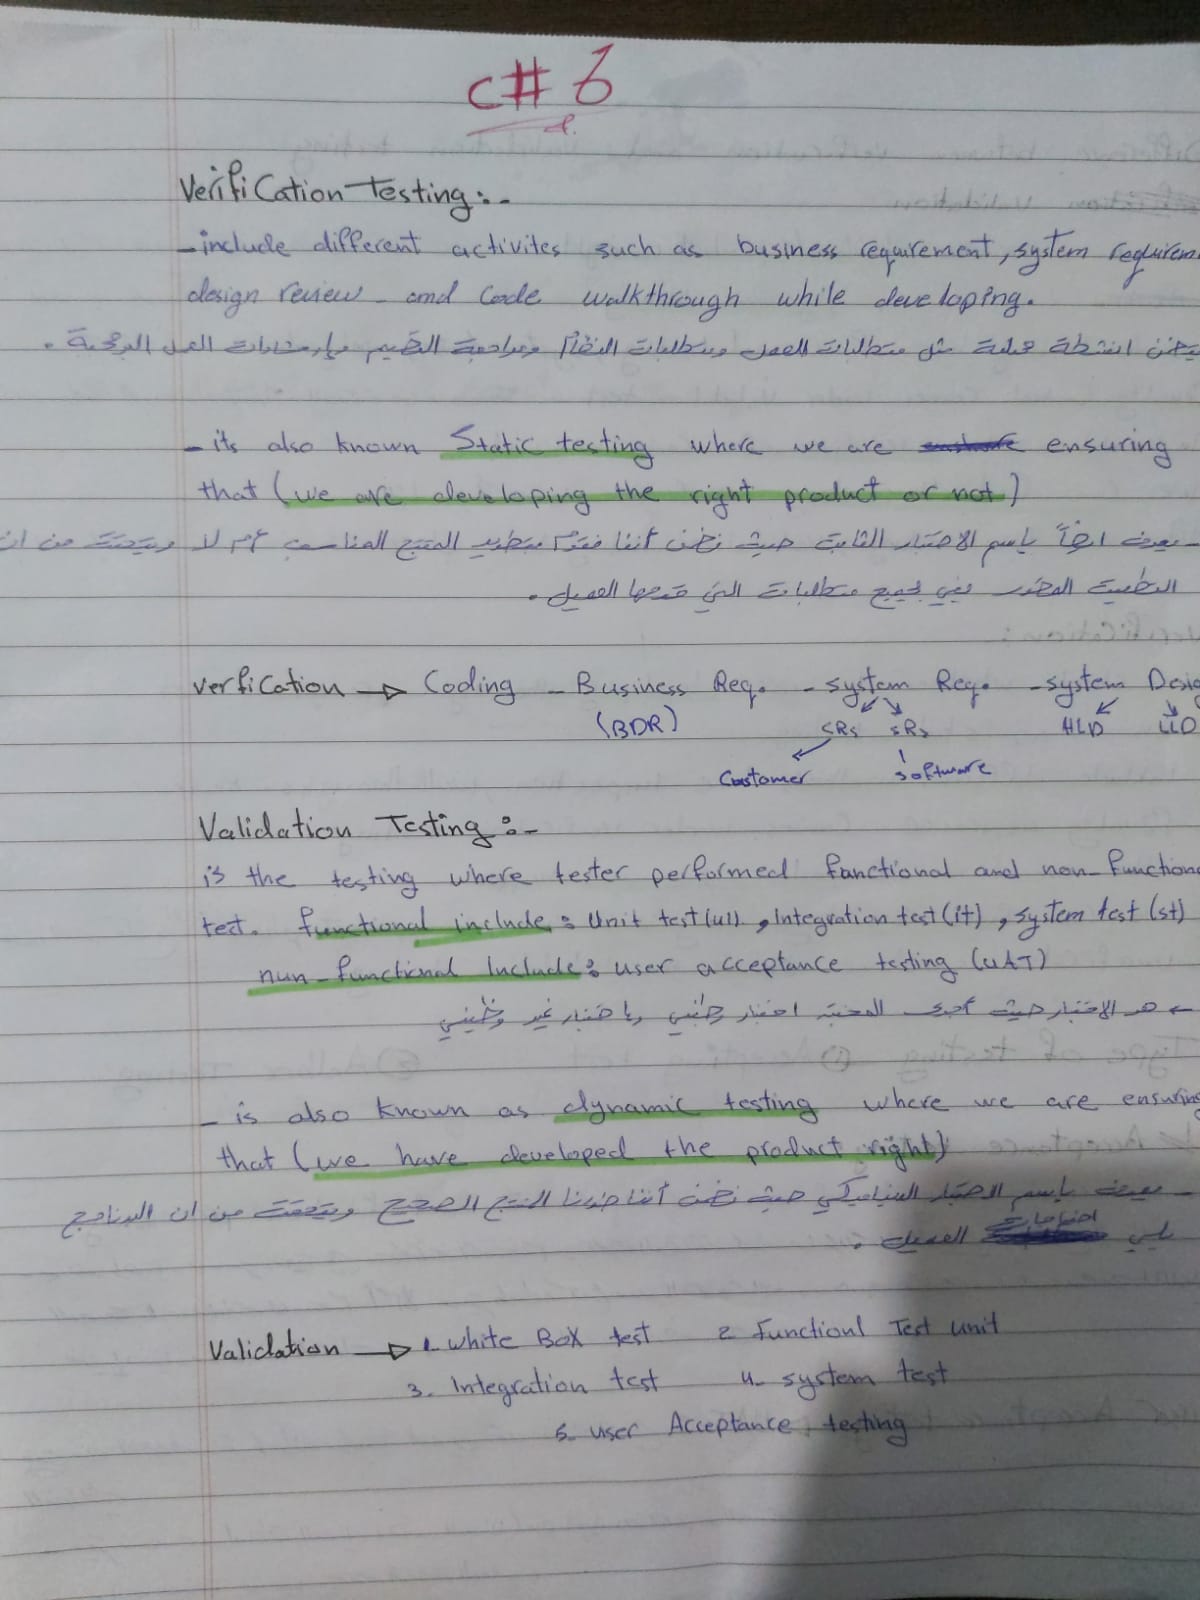 C# 6
Verification Testing:-
- include different activites such as business requirement, system requirem
design review - and Code walkthrough while developing.
انشطة مثل متطلبات العمل ومتطلبات النظام ومراجعة التصميم وإرشادات
- its also known Static testing where we are ensuring
that (we are developing the right product or not)
- يعرف ايضاً باسم الاختبار الثابت حيث نضمن أننا نقوم بتطوير المنتج المناسب أم لا ويتحقق من ان
التطبيق المطور يفي بجميع متطلبات التي قدمها العميل.
verfication → Coding - Business Req. - system Req. - system Desig
(BDR) CRS SRS HLD LLD
Customer software
Validation Testing:-
is the testing where tester performed functional and non-function
test. functional include: Unit test (ut), Integration test (it), system test (st)
nun-functional Include: user acceptance testing (UAT)
← هو الاختبار حيث أجرى المختبر اختبار وظيفي واختبار غير وظيفي
- is also known as dynamic testing where we are ensuring
that (we have developed the product right)
- يعرف باسم الاختبار الديناميكي حيث نضمن أننا طورنا المنتج الصحيح ويتحقق من ان البرنامج
يلبي احتياجات العميل.
Validation → 1. White Box test 2 Functionl Test unit
3. Integration test 4. system test
5. user Acceptance testing